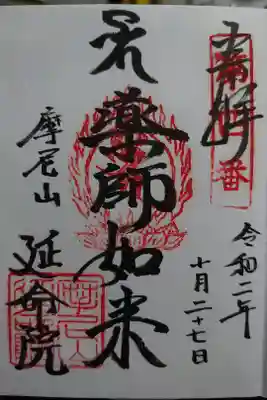 奉拝
令和二年
十月二十七日
薬師如来
摩尼山
延命院